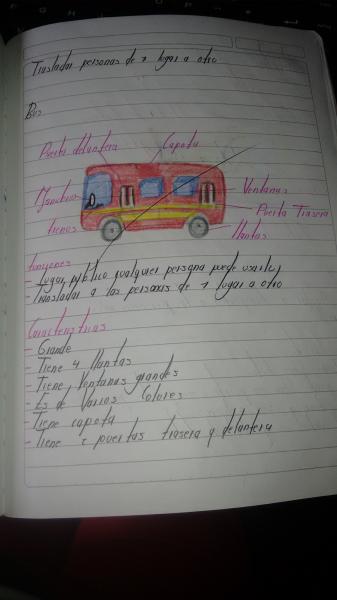 Trasladar personas de 1 lugar a otro
Bus
Puerta delantera
Capota
Ventanas
Puerta Trasera
frenos
llantas
funciones
- Lugar público cualquier persona puede usarlo
- trasladar a las personas de 1 lugar a otro
Características
- Grande
- Tiene 4 llantas
- Tiene Ventanas grandes
- Es de Varios Colores
- Tiene capota
- Tiene 2 puertas trasera y delantera